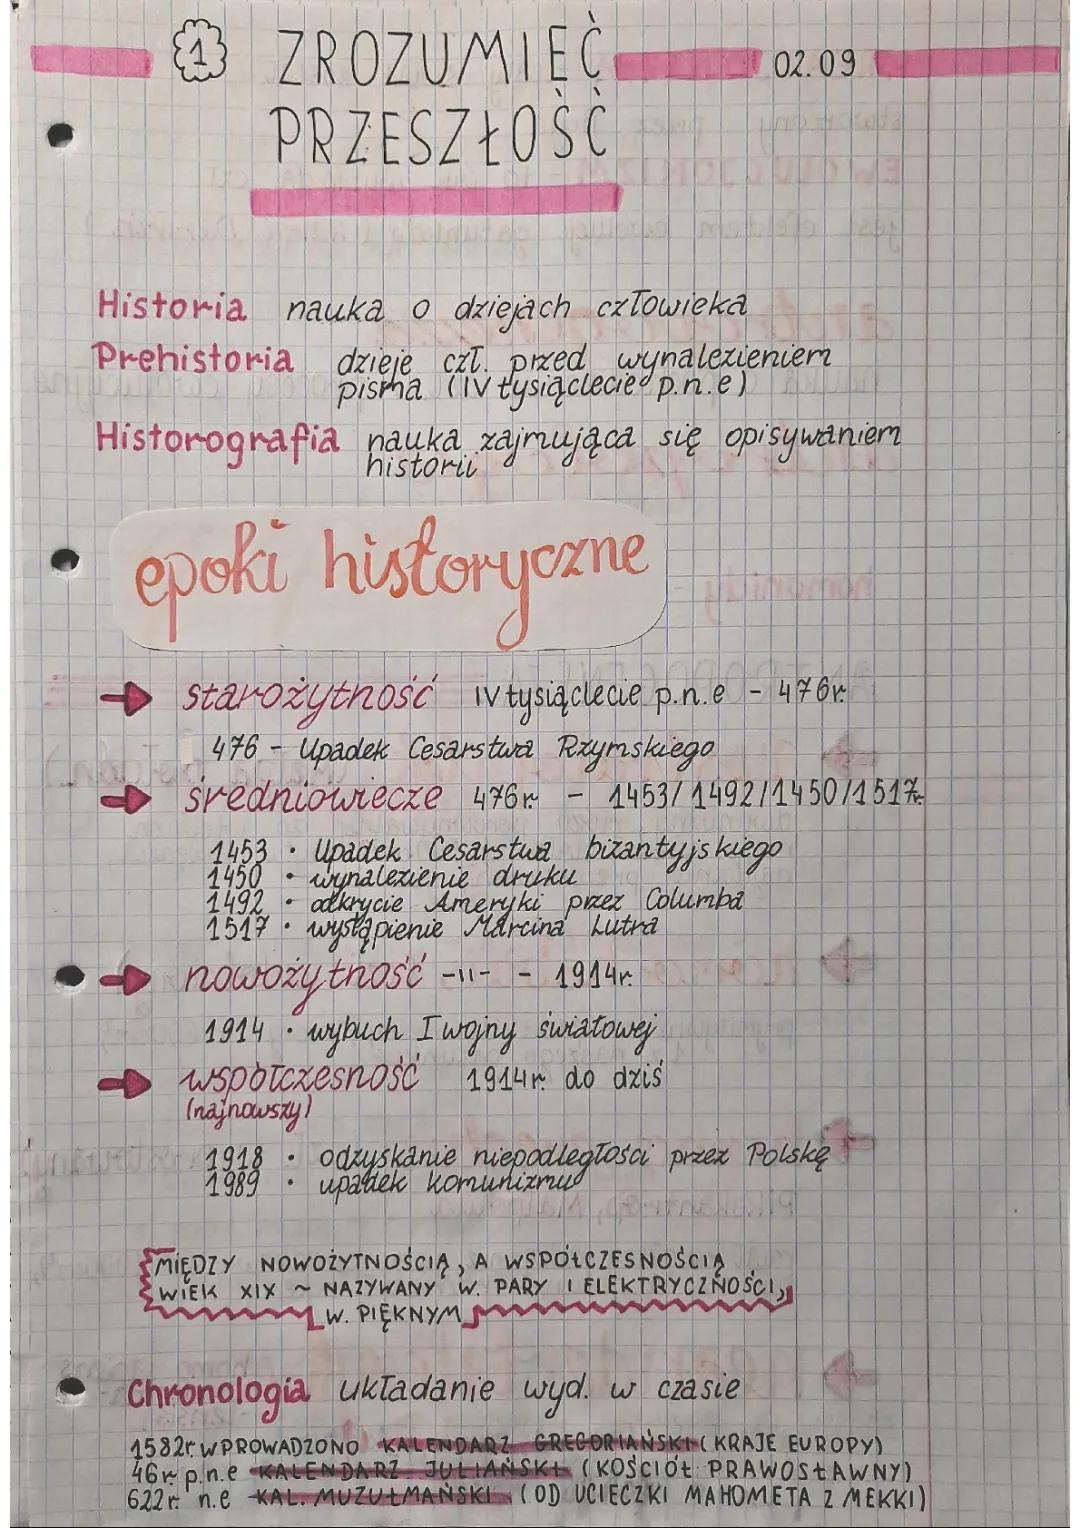 1 ZROZUMIEĆ 02.09
PRZESZŁOŚĆ
Historia nauka o dziejach człowieka
Prehistoria dzieje czł. przed wynalezieniem
pisma (IV tysiąclecie p.n.e)
Historografia nauka zajmująca się opisywaniem
historii
epoki historyczne
→ starożytność IV tysiąclecie p.n.e - 476r.
476 - Upadek Cesarstwa Rzymskiego
→ średniowiecze 476r - 1453/1492/1450/1517r.
1453 • Upadek Cesarstwa bizantyjskiego
1450 • wynalezienie druku
1492 • odkrycie Ameryki przez Columba
1517 • wystąpienie Marcina Lutra
→ nowożytność -11- - 1914r.
1914 • wybuch I wojny światowej
→ współczesność 1914r. do dziś
(najnowszy)
1918 • odzyskanie niepodległości przez Polskę
1989 • upadek komunizmu
MIĘDZY NOWOŻYTNOŚCIĄ, A WSPÓŁCZESNOŚCIĄ
WIEK XIX ~ NAZYWANY W. PARY I ELEKTRYCZNOŚCI,
W. PIĘKNYM
Chronologia układanie wyd. w czasie
1582r. WPROWADZONO KALENDARZ GREGORIAŃSKI (KRAJE EUROPY)
46r p.n.e KALENDARZ JULIAŃSKI (KOŚCIÓŁ PRAWOSŁAWNY)
622r. n.e KAL. MUZUŁMAŃSKI (OD UCIECZKI MAHOMETA Z MEKKI)